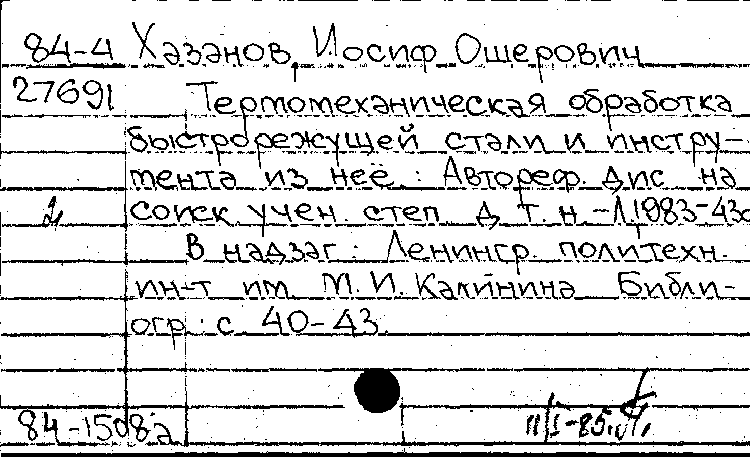 84-4 Хазанов, Иосиф Ошерович
27691 Термомеханическая обработка
быстрорежущей стали и инстру-
мента из неё : Автореф. дис на
соиск. учен. степ. д. т. н. - Л. 1983 - 43с
В надзаг : Ленингр. политехн.
ин-т им. М. И. Калинина Библи-
огр : с. 40-43.
84-1508а